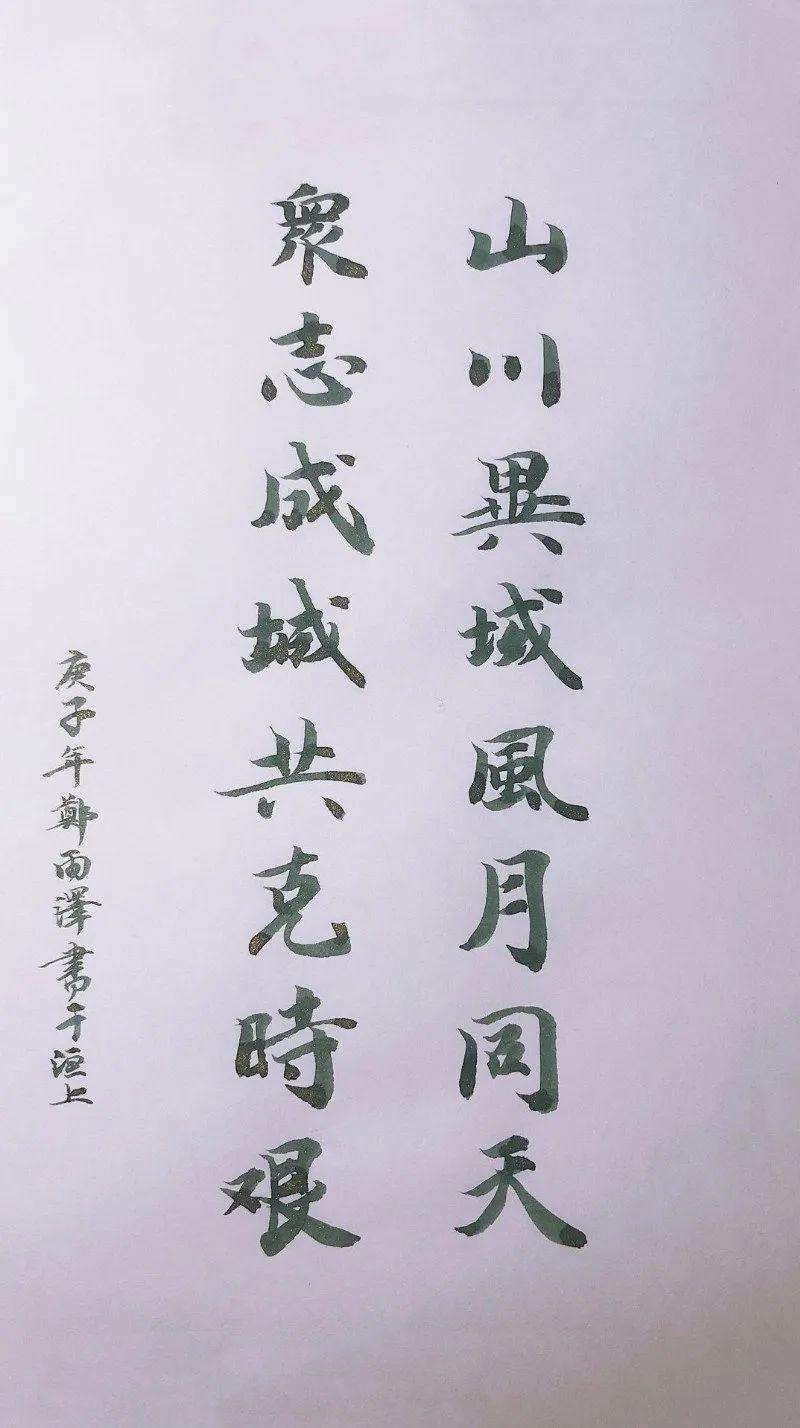 山川異域風月同天
衆志成城共克時艱
庚子年鄭雨澤書于洹上